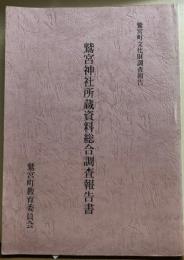 鷲宮町文化財調査報告
鷲宮神社所蔵資料総合調査報告書
鷲宮町教育委員会